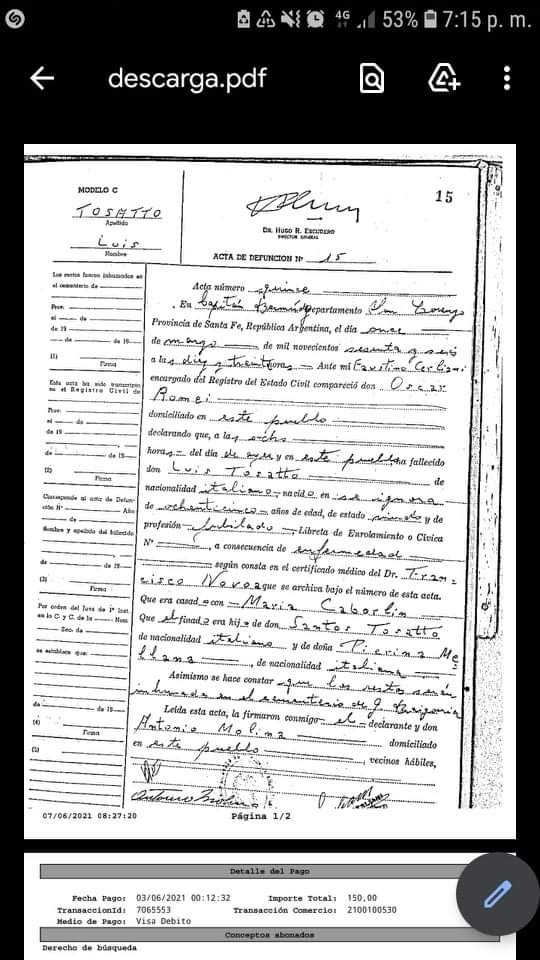 4G 53% 7:15 p. m.
descarga.pdf
MODELO C
TOSATTO
Apellido
LUIS
Nombre
15
DR. HUGO R. ESCUDERO
DIRECTOR GENERAL
ACTA DE DEFUNCION Nº 15
Los restos fueron inhumados en
el cementerio de
Prov.
el de
de 19
de de 19
(1) Firma
Esta acta ha sido transcripta
en el Registro Civil de
Prov.
el de
de 19
de de 19
(2) Firma
Corresponde al acta de Defun-
ción Nº Año
de
Nombre y apellido del fallecido
de de 19
(3) Firma
Por orden del Juez de 1ª Inst.
en lo C. y C. de la Nom
Sec. de
se establece que:
de de 19
(4) Firma
(5)
Acta número quince
En Capitán Bermúdez departamento San Lorenzo
Provincia de Santa Fe, República Argentina, el día once
de marzo de mil novecientos sesenta y seis
a las diez y treinta horas Ante mí Faustino
encargado del Registro del Estado Civil compareció don Oscar
Romei
domiciliado en este pueblo
declarando que, a las ocho
horas del día de ayer y en este pueblo ha fallecido
don Luis Tosatto de
nacionalidad italiano, nacido en se ignora
de ochenticinco años de edad, de estado viudo y de
profesión Jubilado, Libreta de Enrolamiento o Cívica
Nº , a consecuencia de enfermedad
según consta en el certificado médico del Dr. Fran-
cisco Novoa que se archiva bajo el número de esta acta.
Que era casado con María Caborlin
Que el finado era hijo de don Santos Tosatto
de nacionalidad italiano y de doña Pierina Me
llana, de nacionalidad italiana
Asimismo se hace constar que los restos serán
inhumados en el cementerio de
Leída esta acta, la firmaron conmigo el declarante y don
Antonio Molina domiciliado
en este pueblo, vecinos hábiles,
07/06/2021 08:27:20 Página 1/2
Detalle del Pago
Fecha Pago: 03/06/2021 00:12:32 Importe Total: 150,00
TransaccionId: 7065553 Transacción Comercio: 2100100530
Medio de Pago: Visa Debito
Conceptos abonados
Derecho de búsqueda